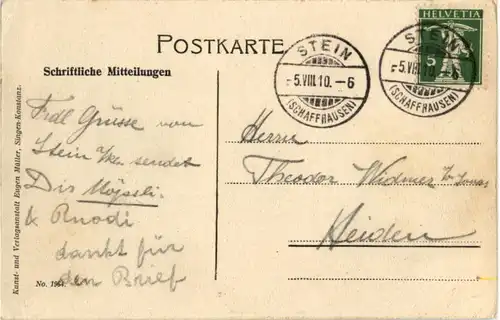 POSTKARTE
Schriftliche Mitteilungen
HELVETIA
5
STEIN
-5.VIII.10.-6
(SCHAFFHAUSEN)
STEIN
-5.VIII.10.-6
(SCHAFFHAUSEN)
Frdl Grüsse von
Stein a/Rh. sendet
Dir
& Ruodi
dankt für
den Brief
Herrn
Theodor Widmer
Heiden
Kunst- und Verlagsanstalt Eugen Müller, Singen-Konstanz.